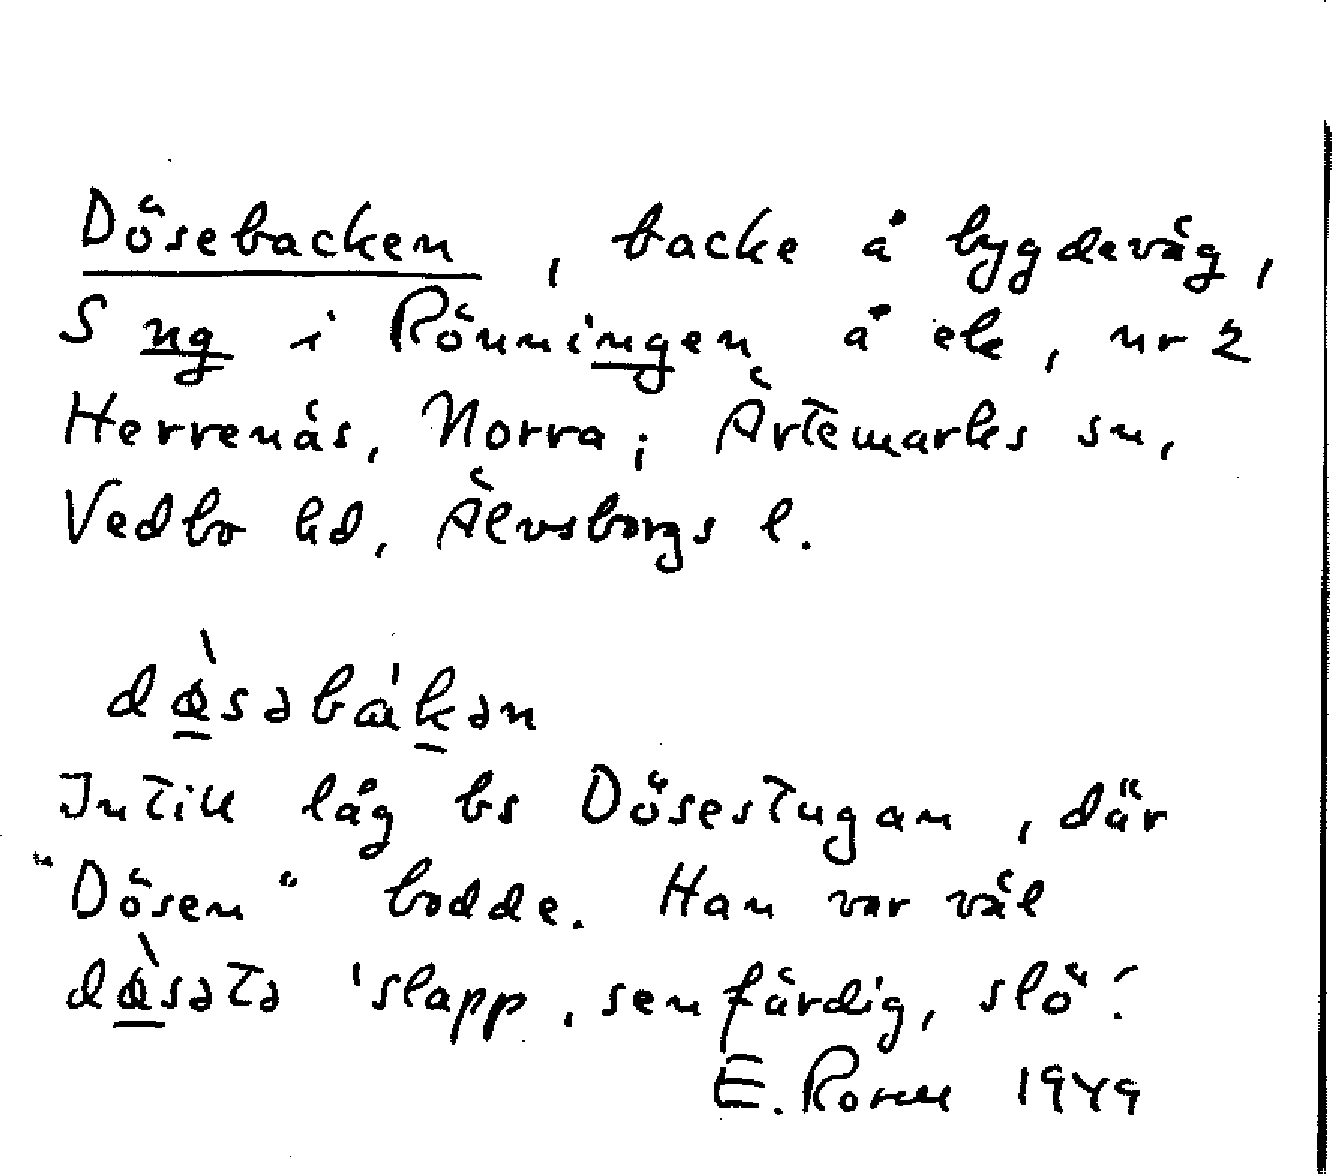 Dösebacken, backe å bygdeväg,
S ng i Rönningen å ek, nr 2
Herrenäs, Norra; Ärtemarks sn,
Vedbo hd, Älvsborgs l.
Intill låg bs Dösestugan, där
"Dösen" bodde. Han var väl
'slapp, senfärdig, slö'.
E. Rosell 1949